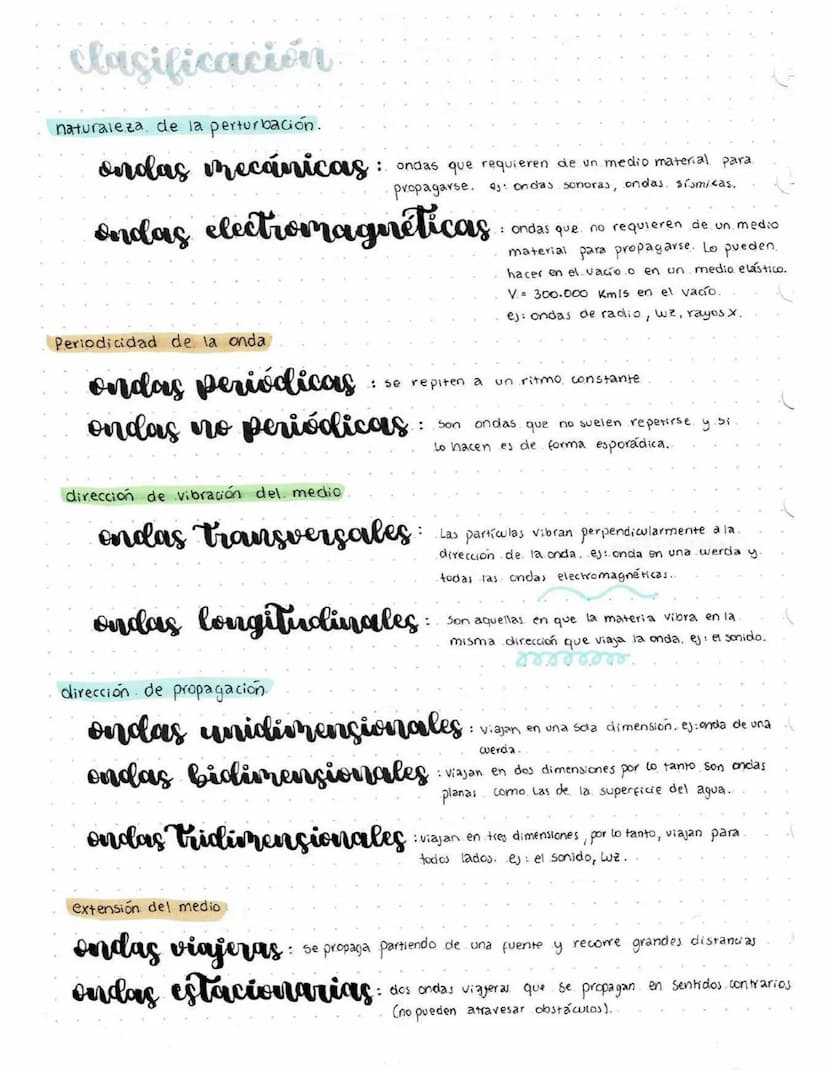 clasificación
naturaleza de la perturbación.
ondas mecánicas: ondas que requieren de un medio material para
propagarse. ej: ondas sonoras, ondas sísmicas.
ondas electromagnéticas: ondas que no requieren de un medio
material para propagarse. Lo pueden
hacer en el vacío o en un medio elástico.
V = 300.000 Km/s en el vacío.
ej: ondas de radio, luz, rayos x.
Periodicidad de la onda
ondas periódicas: se repiten a un ritmo constante
ondas no periódicas: son ondas que no suelen repetirse y si
lo hacen es de forma esporádica.
dirección de vibración del medio
ondas transversales: Las partículas vibran perpendicularmente a la
dirección de la onda. ej: onda en una cuerda y
todas las ondas electromagnéticas.
ondas longitudinales: son aquellas en que la materia vibra en la
misma dirección que viaja la onda. ej: el sonido.
dirección de propagación
ondas unidimensionales: viajan en una sola dimensión. ej: onda de una
cuerda.
ondas bidimensionales: viajan en dos dimensiones por lo tanto son ondas
planas como las de la superficie del agua.
ondas tridimensionales: viajan en tres dimensiones, por lo tanto, viajan para
todos lados. ej: el sonido, luz.
extensión del medio
ondas viajeras: se propaga partiendo de una fuente y recorre grandes distancias
ondas estacionarias: dos ondas viajeras que se propagan en sentidos contrarios
(no pueden atravesar obstáculos).